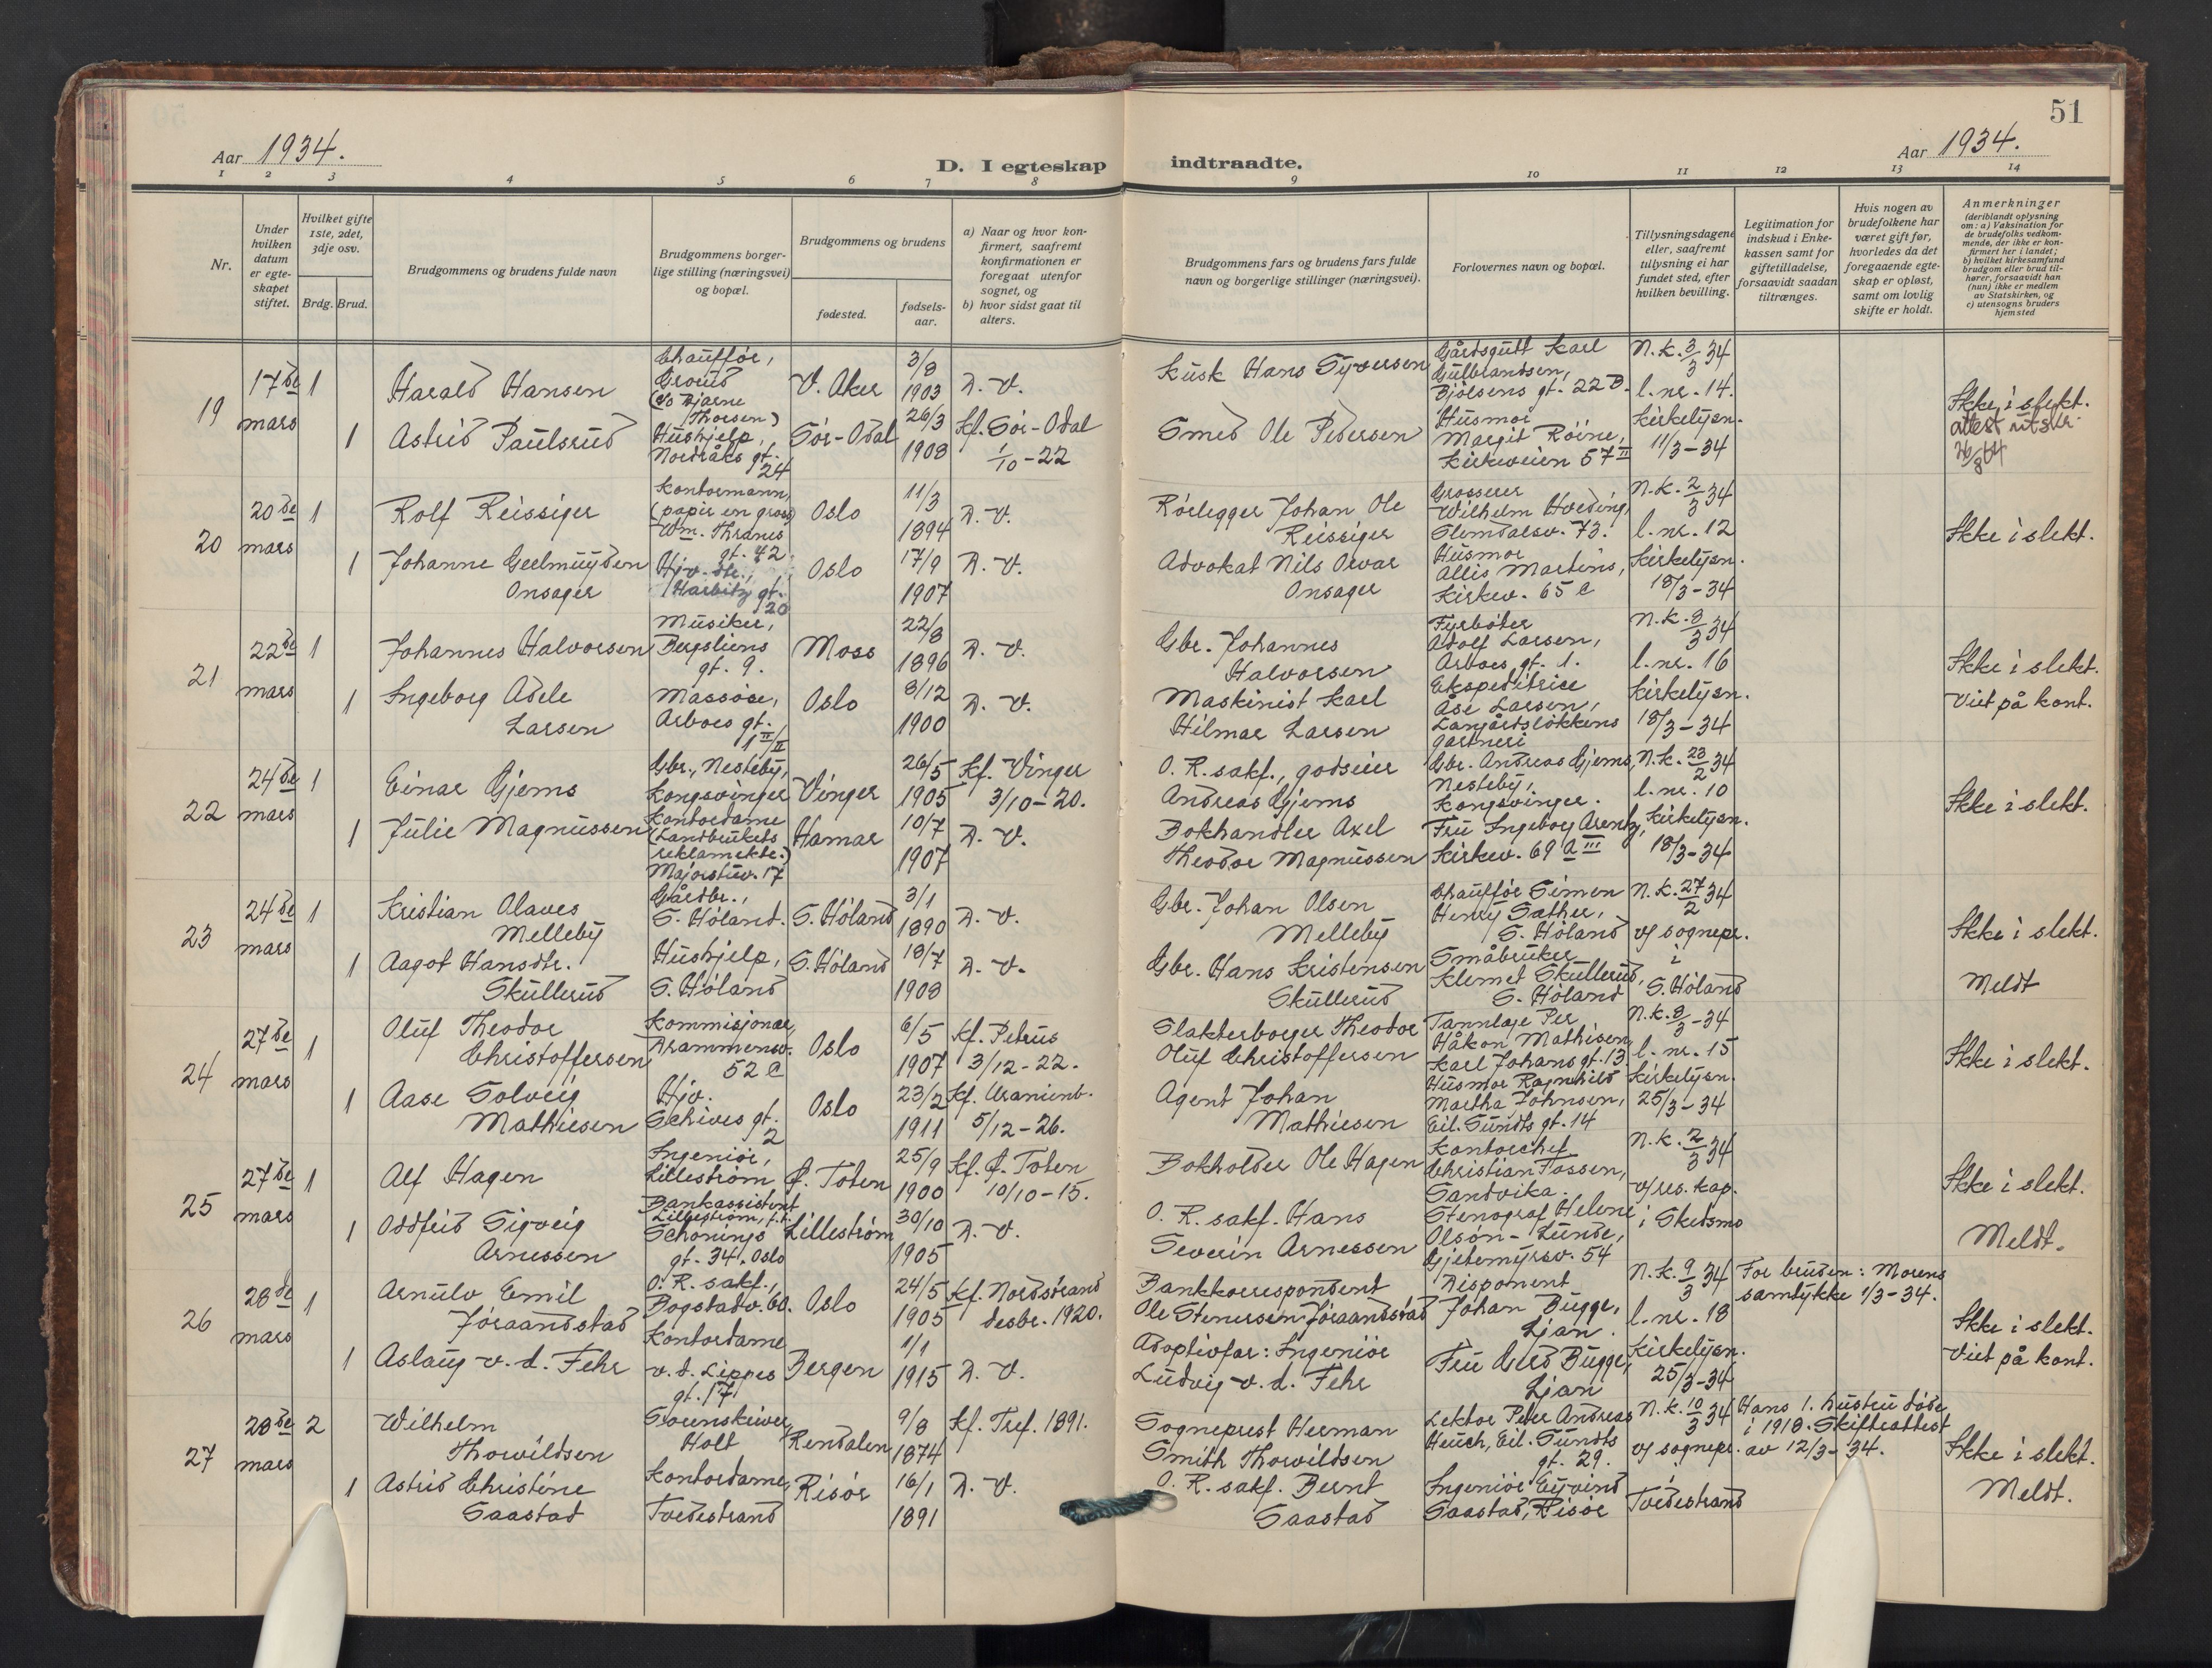 51
Aar 1934.
D. I egteskap indtraadte.
Aar 1934.
1 2 3 4 5 6 7 8 9 10 11 12 13 14
Nr.
Under hvilken datum er egteskapet stiftet.
Hvilket gifte 1ste, 2det, 3dje osv.
Brdg. Brud.
Brudgommens og brudens fulde navn
Brudgommens borgerlige stilling (næringsvei) og bopæl.
Brudgommens og brudens
fødested.
fødselsaar.
a) Naar og hvor konfirmert, saafremt konfirmationen er foregaat utenfor sognet, og
b) hvor sidst gaat til alters.
Brudgommens fars og brudens fars fulde navn og borgerlige stillinger (næringsvei).
Forlovernes navn og bopæl.
Tillysningsdagene eller, saafremt tillysning ei har fundet sted, efter hvilken bevilling.
Legitimation for indskud i Enkekassen samt for giftetilladelse, forsaavidt saadan tiltrænges.
Hvis nogen av brudefolkene har været gift før, hvorledes da det foregaaende egteskap er opløst, samt om lovlig skifte er holdt.
Anmerkninger
(deriblandt oplysning om: a) Vaksination for de brudefolks vedkommende, der ikke er konfirmert her i landet; b) hvilket kirkesamfund brudgom eller brud tilhører, forsaavidt han (hun) ikke er medlem av Statskirken, og c) utensogns bruders hjemsted
19 17de mars 1 Harald Hansen Chauffør, Grorud (c/o Bjarne Thorsen) V. Aker 3/8 1903 D. v. Kusk Hans Syversen Gårdsgutt Karl Gulbrandsen, Bjølsens gt. 22 B. N. k. 3/3 34 l. nr. 14.
1 Astrid Paulsrud Hushjelp, Nordråks gt. 24 Sør-Odal 26/3 1908 Kf. Sør-Odal 1/10-22 Smed Ole Pedersen Husmor Margit Røine, Kirkeveien 57 II Kirkelysn. 11/3-34 Ikke i slekt. attest utskr. 26/8 64
20 20de mars 1 Rolf Reissiger Kontormann, (papir en gros) Wm. Thranes gt. 42 Oslo 11/3 1894 D. v. Rørlegger Johan Ole Reissiger Grosserer Wilhelm Hveding, Slemdalsv. 73. N. k. 2/3 34 l. nr. 12
1 Johanne Geelmuyden Onsager Hjv. dtr., Harbitz gt. 20 Oslo 17/9 1907 D. v. Advokat Nils Orvar Onsager Husmor Allis Martens, Kirkev. 65 c Kirkelysn. 18/3-34 Ikke i slekt.
21 22de mars 1 Johannes Halvorsen Musiker, Bergsliens gt. 9. Moss 22/8 1896 D. v. Gbr. Johannes Halvorsen Fyrbøter Adolf Larsen, Arboes gt. 1. N. k. 8/3 34 l. nr. 16
1 Ingeborg Adele Larsen Massøse, Arboes gt. 1 II/II Oslo 8/12 1900 D. v. Maskinist Karl Hilmar Larsen Ekspeditrice Åse Larsen, Langårdsløkkens gartneri Kirkelysn. 18/3-34 Ikke i slekt. Viet på kont.
22 24de mars 1 Einar Gjems Gbr., Nesteby, Kongsvinger Vinger 26/5 1905 Kf. Vinger 3/10-20. O. R. sakf., godseier Andreas Gjems Gbr. Andreas Gjems, Nesteby, Kongsvinger. N. k. 23/2 34 l. nr. 10
1 Julie Magnussen Kontordame (Landbrukets reklamektr.) Majorstuv. 17 Hamar 10/7 1907 D. v. Bokhandler Axel Theodor Magnussen Fru Ingeborg Arentz, Kirkev. 69 a III Kirkelysn. 18/3-34 Ikke i slekt.
23 24de mars 1 Kristian Olaves Melleby Gårdbr., S. Høland. S. Høland 3/1 1890 D. v. Gbr. Johan Olsen Melleby Chauffør Simen Henry Sæther, S. Høland N. k. 27/2 34 v/ sognepr. i S. Høland
1 Aagot Hansdtr. Skullerud Hushjelp, S. Høland S. Høland 18/7 1908 D. v. Gbr. Hans Kristensen Skullerud Småbruker Klemet Skullerud, S. Høland Ikke i slekt. Meldt
24 27de mars 1 Oluf Theodor Christoffersen Kommisjonær, Drammensv. 52 c Oslo 6/5 1907 Kf. Petrus 3/12-22. Slakterborger Theodor Oluf Christoffersen Tannlæge Per Håkon Mathisen, Karl Johans gt. 13 N. k. 8/3-34 l. nr. 15
1 Aase Solveig Mathiesen Hjv. Schives gt. 2 Oslo 23/2 1911 Kf. Uranienb. 5/12-26. Agent Johan Mathiesen Husmor Ragnhild Martha Johnsen, Eil. Sundts gt. 14 Kirkelysn. 25/3-34 Ikke i slekt.
25 27de mars 1 Alf Hagen Ingeniør, Lillestrøm Ø. Toten 25/9 1900 Kf. Ø. Toten 10/10-15. Bokholder Ole Hagen Kontorchef Christian Fossen, Sandvika. N. k. 2/3 34 v/ res. kap. i Skedsmo
1 Oddfrid Sigveig Arnessen Bankassistent Lillestrøm, f.t. Schønings gt. 34, Oslo Lillestrøm 30/10 1905 D. v. O. R. sakf. Hans Severin Arnessen Stenograf Helene Olsøn-Lunde, Gjetemyrsv. 54 Ikke i slekt. Meldt.
26 28de mars 1 Arnulv Emil Jøraandstad O. R. sakf., Bogstadv. 60. Oslo 24/5 1905 Kf. Nordstrand desbr. 1920. Bankkorrespondent Ole Stenersen Jøraandstad Disponent Johan Bugge, Ljan. N. k. 9/3 34 l. nr. 18 For bruden: Morens samtykke 1/3-34.
1 Aslaug v. d. Fehr Kontordame v. d. Lippes gt. 17 Bergen 1/1 1915 D. v. Adoptivfar: Ingeniør Ludvig v. d. Fehr Fru Gerd Bugge, Ljan Kirkelysn. 25/3-34 Ikke i slekt. Viet på kont.
27 28de mars 2 Wilhelm Thorvildsen Sorenskriver, Holt Rendalen 9/8 1874 Kf. Tref. 1891. Sogneprest Herman Smith Thorvildsen Lektor Peter Andreas Heuch, Eil. Sundts gt. 29. N. k. 10/3 34 v/ sognepr. Tvedestrand Hans 1. hustru døde i 1918. Skifteattest av 12/3-34.
1 Astrid Christine Saastad Kontordame, Tvedestrand Risør 16/1 1891 D. v. O. R. sakf. Bernt Saastad Ingeniør Eyvind Saastad, Risør Ikke i slekt. Meldt.